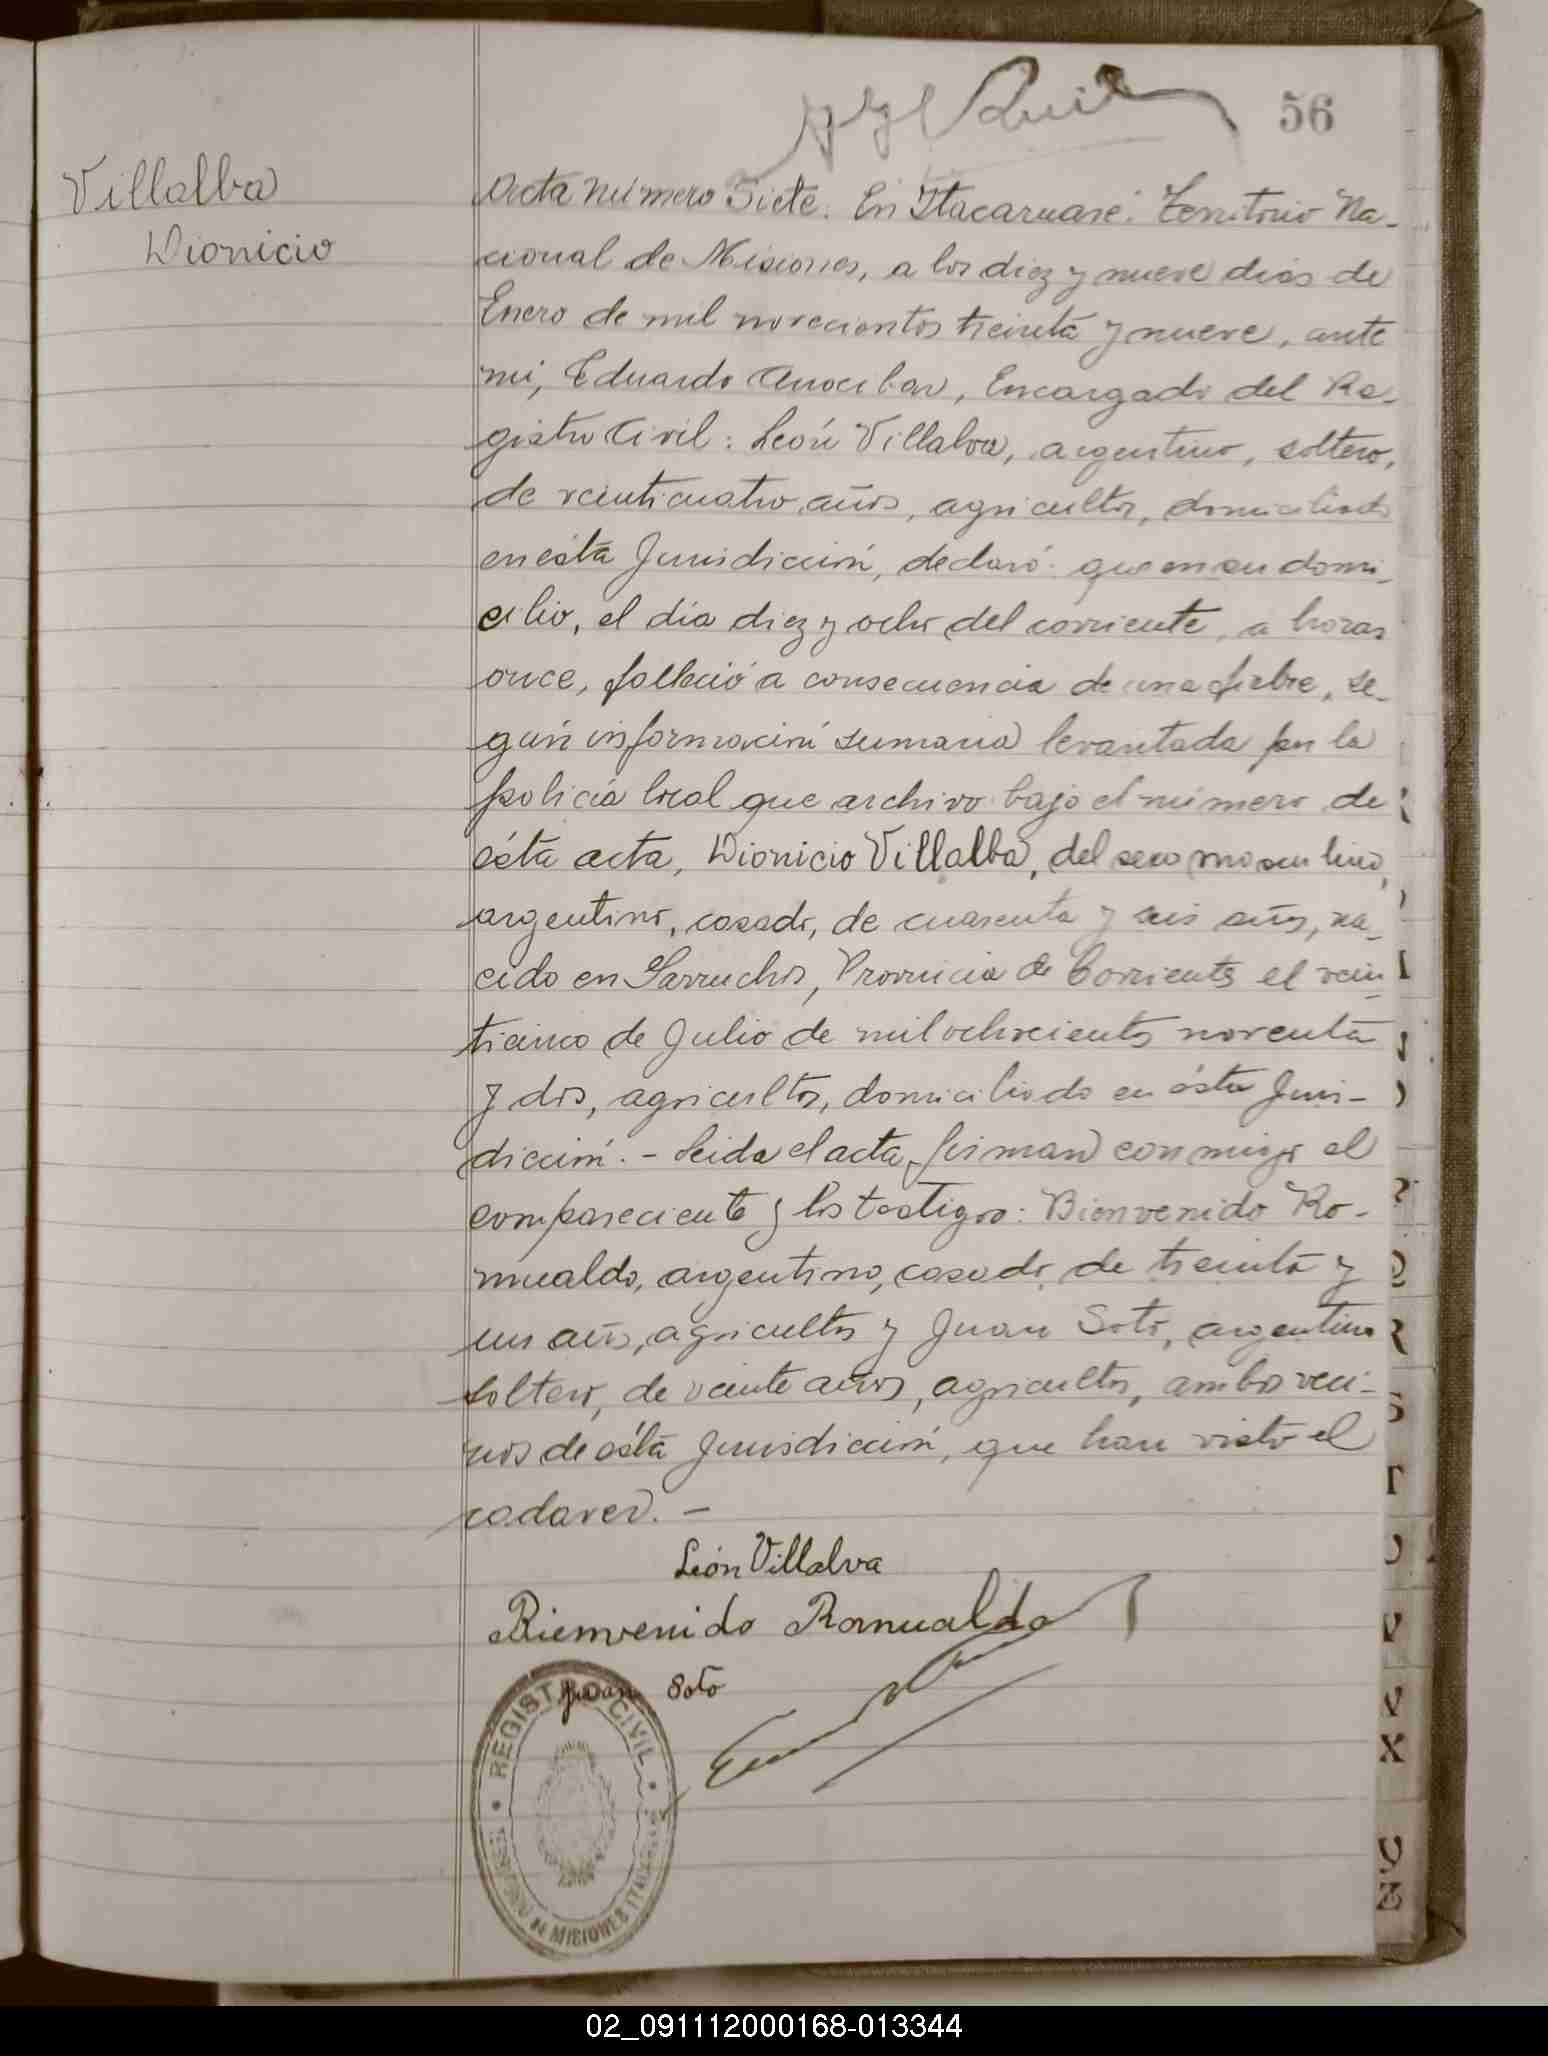 56
Villalba
Dionicio
Acta número Siete. En Itacaruaré. Territorio Na-
cional de Misiones, a los diez y nueve dias de
Enero de mil novecientos treinta y nueve, ante
mi, Eduardo Anocibar, Encargado del Re-
gistro Civil: León Villalva, argentino, soltero,
de veinticuatro años, agricultor, domiciliado
en ésta Jurisdicción, declaró: que en su domi-
cilio, el día diez y ocho del corriente, a horas
once, falleció a consecuencia de una fiebre, se-
gún información sumaria levantada por la
policía local que archivo bajo el número de
ésta acta, Dionicio Villalba, del sexo masculino,
argentino, casado, de cuarenta y seis años, na-
cido en Garruchos, Provincia de Corrientes el vein-
ticinco de Julio de mil ochocientos noventa
y dos, agricultor, domiciliado en ésta Juris-
dicción. - Leida el acta, firman conmigo el
compareciente y los testigos: Bienvenido Ro-
mualdo, argentino, casado, de treinta y
un años, agricultor y Juan Soto, argentino
soltero, de veinte años, agricultor, ambos veci-
nos de ésta Jurisdicción, que han visto el
cadaver. -
León Villalva
Bienvenido Romualdo
Juan Soto
REGISTRO CIVIL
TERRITORIO de MISIONES ITACARUARE
R
S
T
U
V
V
X
Y
Z
02_091112000168-013344